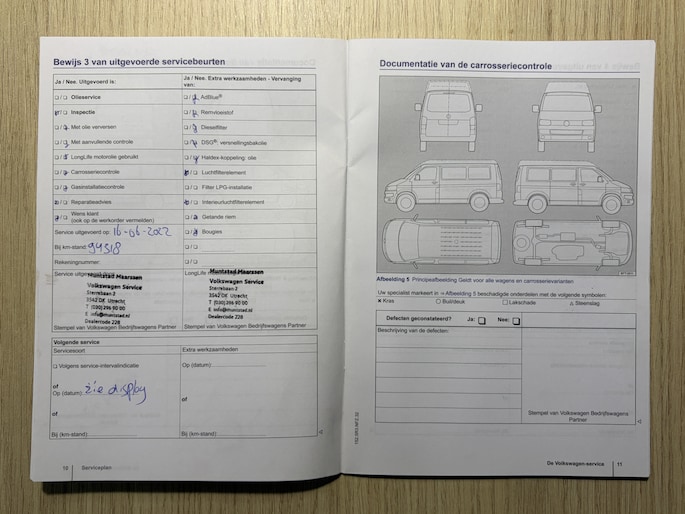 Bewijs 3 van uitgevoerde servicebeurten
Ja / Nee. Uitgevoerd is:
Ja / Nee. Extra werkzaamheden - Vervanging van:
Olieservice
AdBlue®
Inspectie
Remvloeistof
Met olie verversen
Dieselfilter
Met aanvullende controle
DSG®: versnellingsbakolie
LongLife motorolie gebruikt
Haldex-koppeling: olie
Carrosseriecontrole
Luchtfilterelement
Gasinstallatiecontrole
Filter LPG-installatie
Reparatieadvies
Interieurluchtfilterelement
Wens klant
(ook op de werkorder vermelden)
Getande riem
Service uitgevoerd op: 16-06-2022
Bougies
Bij km-stand: 94318
Rekeningnummer:
Service uitgevoerd
LongLife
Muntstad Maarssen
Volkswagen Service
Sterrebaan 2
3542 DK Utrecht
T (030) 296 90 00
E info@muntstad.nl
Dealercode 228
Muntstad Maarssen
Volkswagen Service
Sterrebaan 2
3542 DK Utrecht
T (030) 296 90 00
E info@muntstad.nl
Dealercode 228
Stempel van Volkswagen Bedrijfswagens Partner
Stempel van Volkswagen Bedrijfswagens Partner
Volgende service
Servicesoort
Extra werkzaamheden
Volgens service-intervalindicatie
Op (datum):
of
Op (datum): zie display
of
of
Bij (km-stand):
Bij (km-stand):
10 Serviceplan
Documentatie van de carrosseriecontrole
Afbeelding 5 Principeafbeelding Geldt voor alle wagens en carrosserievarianten
Uw specialist markeert in → Afbeelding 5 beschadigde onderdelen met de volgende symbolen:
× Kras ○ Buil/deuk □ Lakschade △ Steenslag
Defecten geconstateerd? Ja: Nee:
Beschrijving van de defecten:
Stempel van Volkswagen Bedrijfswagens
Partner
De Volkswagen-service 11